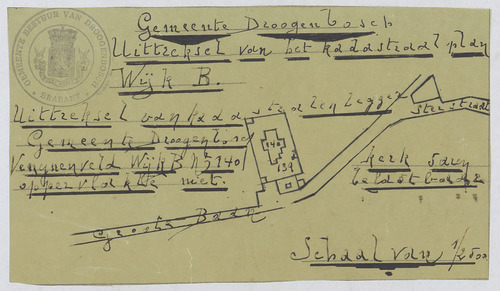 GEMEENTE BESTUUR VAN DROOGENBOSCH
BRABANT
Gemeente Droogenbosch
Uittreksel van het kadastraal plan
Wijk B.
Uittreksel van kadastralen legger
Gemeente Droogenbosch
Wijk B N 140
oppervlakte niet.
140
139
Steenstraat
kerk
Groote Baan
Schaal van 1/2500